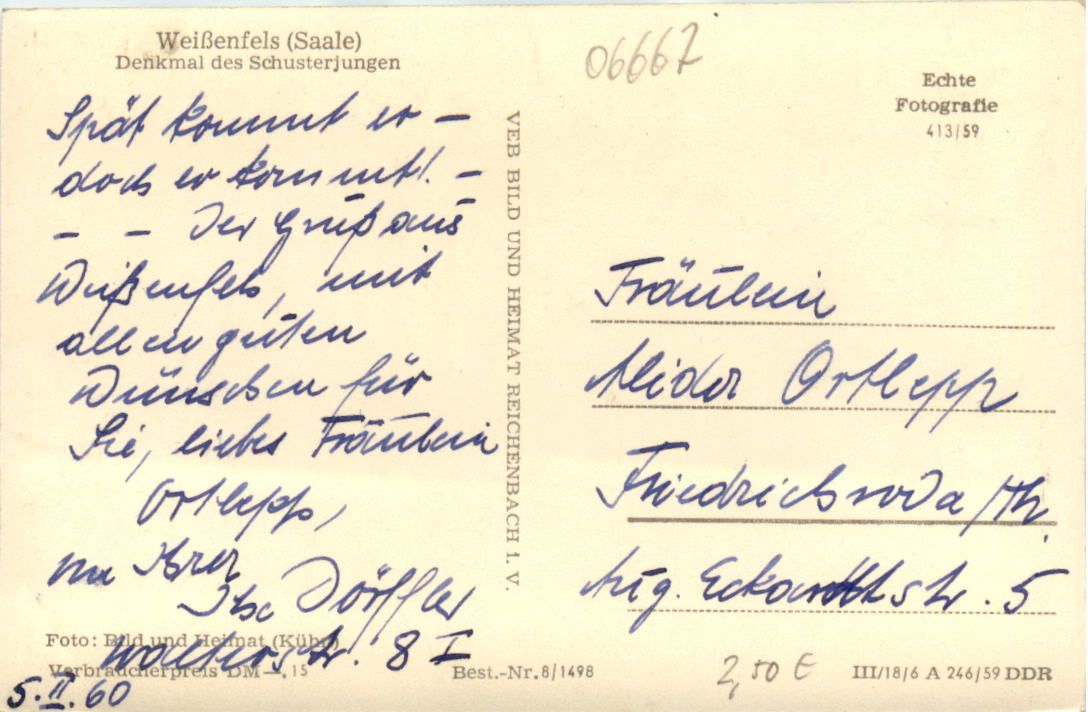 Weißenfels (Saale)
Denkmal des Schusterjungen
06667
Echte
Fotografie
413/59
Spät kommt er –
doch er kommt! –
– – Der Gruß aus
Weißenfels, mit
allen guten
Wünschen für
Sie, liebes Fräulein
Ortlepp,
Ihrer
Ilse Dörffler
Walterstr. 8 I
5.II.60
VEB BILD UND HEIMAT REICHENBACH i. V.
Fräulein
Alida Ortlepp
Friedrichroda/Th.
Aug. Eckardtstr. 5
Foto: Bild und Heimat (Kühn)
Verbraucherpreis DM –.15
Best.-Nr. 8/1498
2,50 €
III/18/6 A 246/59 DDR